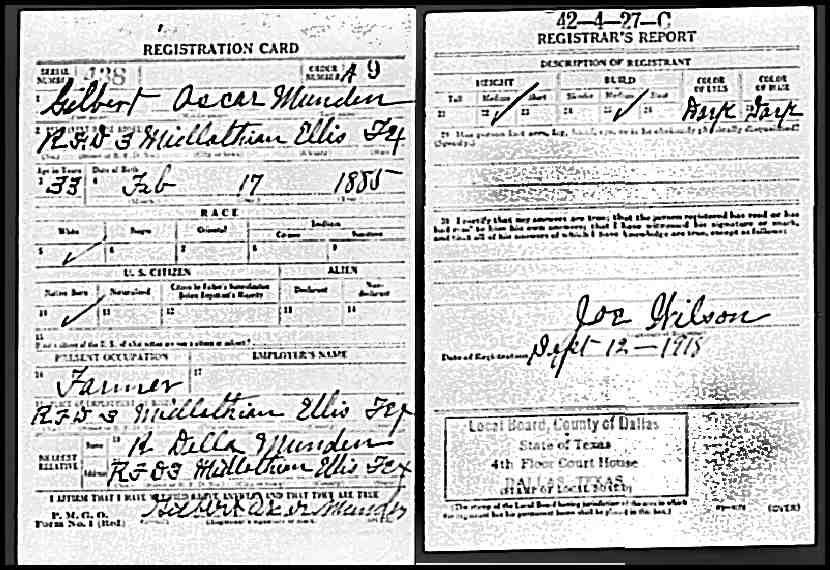 REGISTRATION CARD
SERIAL NUMBER 438 ORDER NUMBER A 9
1 Gilbert Oscar Munden
RFD 3 Midlothian Ellis Tex
Age in Years Date of Birth
33 Feb 17 1885
RACE
White Negro Oriental Indian
Citizen Noncitizen
5 6 7 8 9
U. S. CITIZEN ALIEN
Native Born Naturalized Citizen by Father's Naturalization Before Registrant's Majority Declarant Non-declarant
10 11 12 13 14
15
If not a citizen of the U. S., of what nation are you a citizen or subject?
PRESENT OCCUPATION EMPLOYER'S NAME
16 Farmer 17
RFD 3 Midlothian Ellis Tex
NEAREST RELATIVE Name R Della Munden
Address RFD 3 Midlothian Ellis Tex
I AFFIRM THAT I HAVE VERIFIED ABOVE ANSWERS AND THAT THEY ARE TRUE
P. M. G. O.
Form No. 1 (Red)
Gilbert Oscar Munden
42-4-27-C
REGISTRAR'S REPORT
DESCRIPTION OF REGISTRANT
HEIGHT BUILD COLOR OF EYES COLOR OF HAIR
Tall Medium Short Slender Medium Stout
21 22 23 24 25 26 Dark Dark
29 Has person lost arm, leg, hand, eye, or is he obviously physically disqualified?
(Specify.)
30 I certify that my answers are true; that the person registered has read or has
had read to him his own answers; that I have witnessed his signature or mark,
and that all of his answers of which I have knowledge are true, except as follows:
Joe Wilson
Date of Registration Sept 12-1918
Local Board, County of Dallas
State of Texas
4th Floor Court House
DALLAS, TEXAS
(STAMP OF LOCAL BOARD)
(The stamp of the Local Board having jurisdiction of the area in which
the registrant has his permanent home shall be placed in this box.)
(OVER)